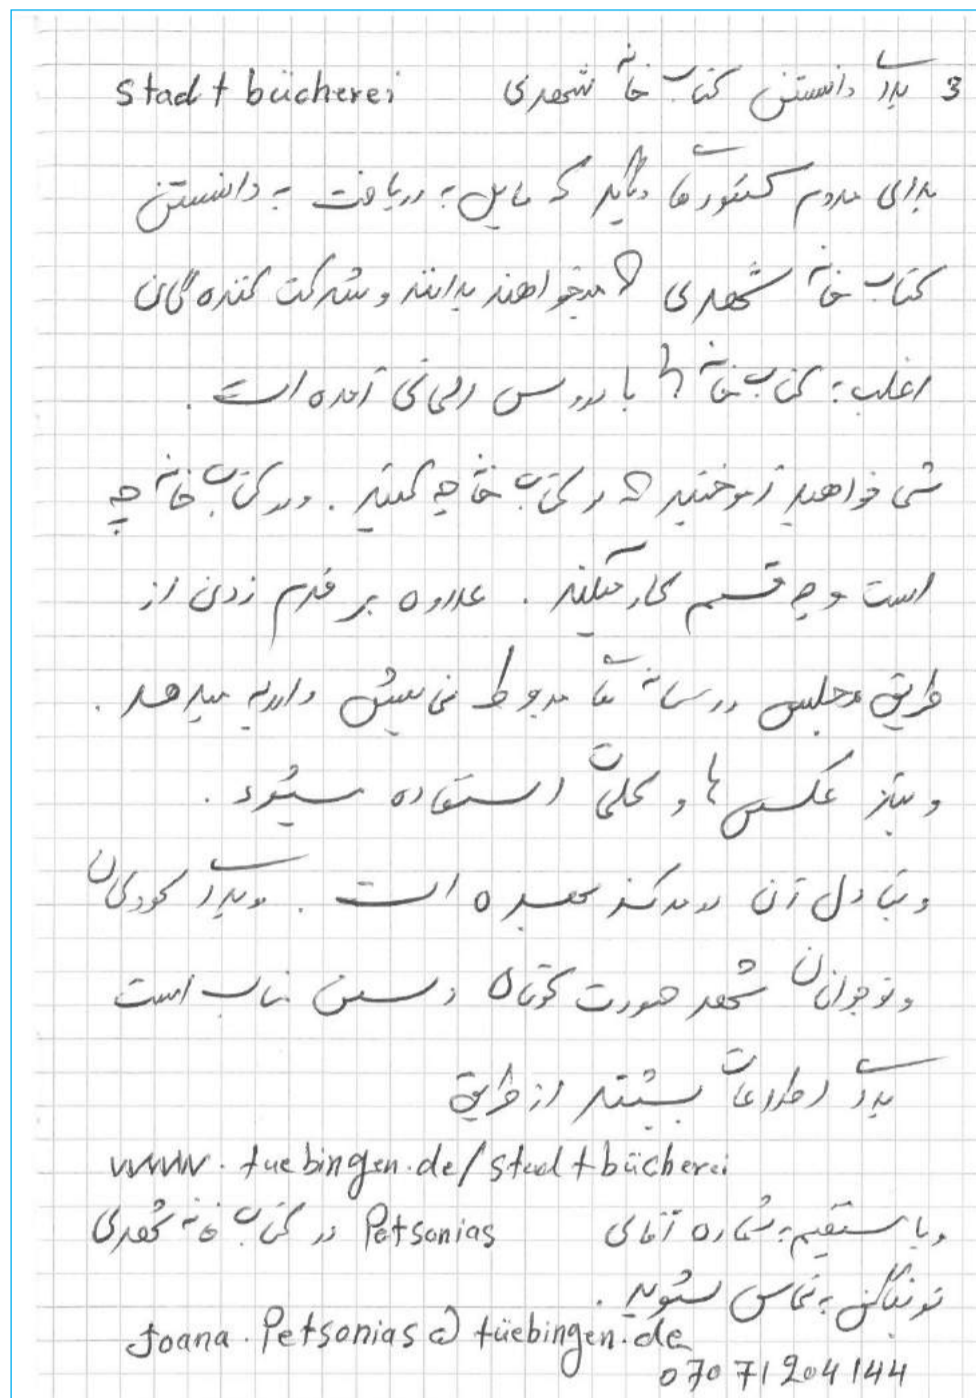 3 برای دانستن کتاب خانه شهری Stadtbücherei
برای مردم کشورها دیگر که مایل به دریافت به دانستن
کتاب خانه شهری میخواهند بدانند و شرکت کننده گان
اغلب به کتاب خانه ها با درس المانی آمده است.
شما خواهید آموختید که در کتاب خانه چه کنید. و در کتاب خانه چه
است و چه قسم کار میکند. علاوه بر قدم زدن از
طریق مجلس و رسانه ها مربوط نمایش داده میدهد.
و نیز عکس ها و کلمات استفاده میشود.
و تبادل آن در مرکز است. و برای کودکان
و نوجوانان شهر صورت کوتاه مناسب است
برای اطلاعات بیشتر از طریق
www.tuebingen.de/stadtbücherei
و یا مستقیم به شماره آقای Petsonias در کتاب خانه شهری
توبینگن به تماس شوید.
Joana.Petsonias@tüebingen.de
070 71 204 144